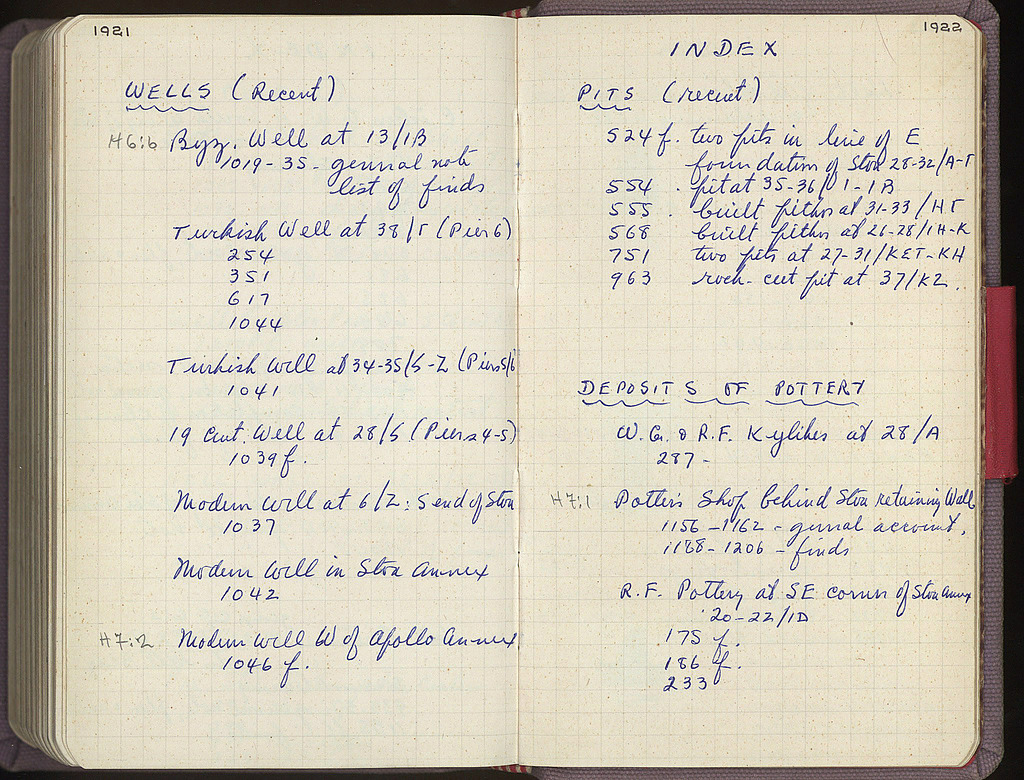 1921
WELLS (Recent)
H6:6 Byz. Well at 13/1B
1019-35 - general note
list of finds
Turkish Well at 38/Γ (Pier 6)
254
351
617
1044
Turkish Well at 34-35/5-Z (Piers 5/6
1041
19 Cent. Well at 28/5 (Piers 4-5)
1039 f.
Modern Well at 6/Z: S end of Stoa
1037
Modern Well in Stoa Annex
1042
H7:2 Modern Well W of Apollo Annex
1046 f.
1922
INDEX
PITS (recent)
524 f. two pits in line of E
foundation of Stoa 28-32/A-Γ
554 . pit at 35-36/ 1-1B
555 . built pithos at 31-33/HΓ
568 built pithos at 26-28/1H-K
751 two pits at 27-31/KET-KH
963 rock-cut pit at 37/KZ.
DEPOSITS OF POTTERY
W.G. & R.F. Kylikes at 28/A
287 -
H7:1 Potter's Shop behind Stoa retaining Wall
1156-1162 - general account,
1188-1206 - finds
R.F. Pottery at SE corner of Stoa Annex
20-22/1D
175 f.
186 f.
233